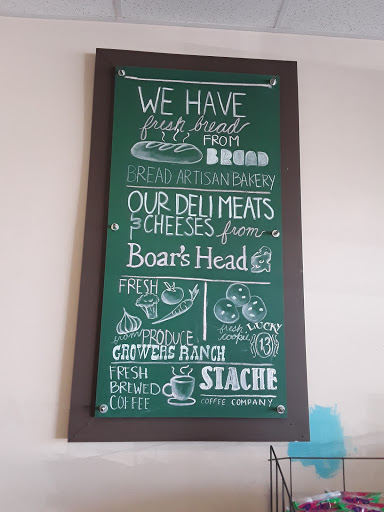 WE HAVE
fresh bread
FROM
BREAD
BREAD ARTISAN BAKERY
OUR DELI MEATS
& CHEESES from
Boar's Head
FRESH
from PRODUCE
GROWERS RANCH
fresh cookies
LUCKY
13
FRESH
BREWED
COFFEE
STACHE
COFFEE COMPANY